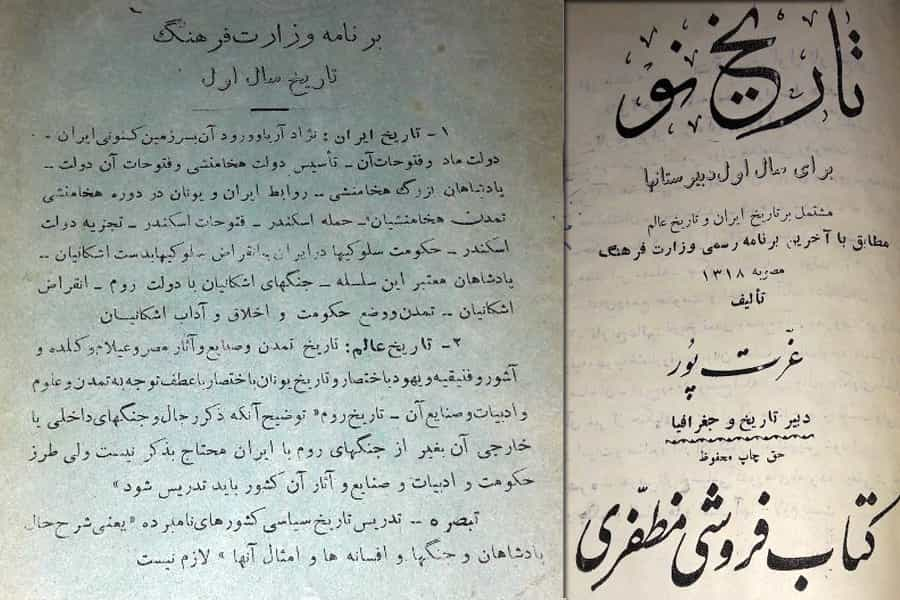 برنامه وزارت فرهنگ
تاریخ سال اول
۱- تاریخ ایران: نژاد آریا و ورود آن بسرزمین کنونی ایران -
دولت ماد و فتوحات آن - تأسیس دولت هخامنشی و فتوحات آن دولت -
پادشاهان بزرگ هخامنشی - روابط ایران و یونان در دوره هخامنشی
تمدن هخامنشیان - حمله اسکندر - فتوحات اسکندر - تجزیه دولت
اسکندر - حکومت سلوکیها در ایران و انقراض سلوکیها بدست اشکانیان -
پادشاهان معتبر این سلسله - جنگهای اشکانیان با دولت روم - انقراض
اشکانیان - تمدن و وضع حکومت و اخلاق و آداب اشکانیان
۲- تاریخ عالم: تاریخ تمدن و صنایع و آثار مصر و عیلام و کلده و
آشور و فنیقیه و یهود باختصار و تاریخ یونان باختصار با عطف توجه به تمدن و علوم
و ادبیات و صنایع آن - تاریخ روم «توضیح آنکه ذکر رجال و جنگهای داخلی یا
خارجی آن بغیر از جنگهای روم با ایران محتاج بذکر نیست ولی طرز
حکومت و ادبیات و صنایع و آثار آن کشور باید تدریس شود»
تبصره - تدریس تاریخ سیاسی کشورهای نامبرده «یعنی شرح حال
پادشاهان و جنگها و افسانه ها و امثال آنها» لازم نیست
تاریخ نو
برای سال اول دبیرستانها
مشتمل بر تاریخ ایران و تاریخ عالم
مطابق با آخرین برنامه رسمی وزارت فرهنگ
مصوبه ۱۳۱۸
تألیف
عزّت پُور
دبیر تاریخ و جغرافیا
حق چاپ محفوظ
کتاب فروشی مظفّری